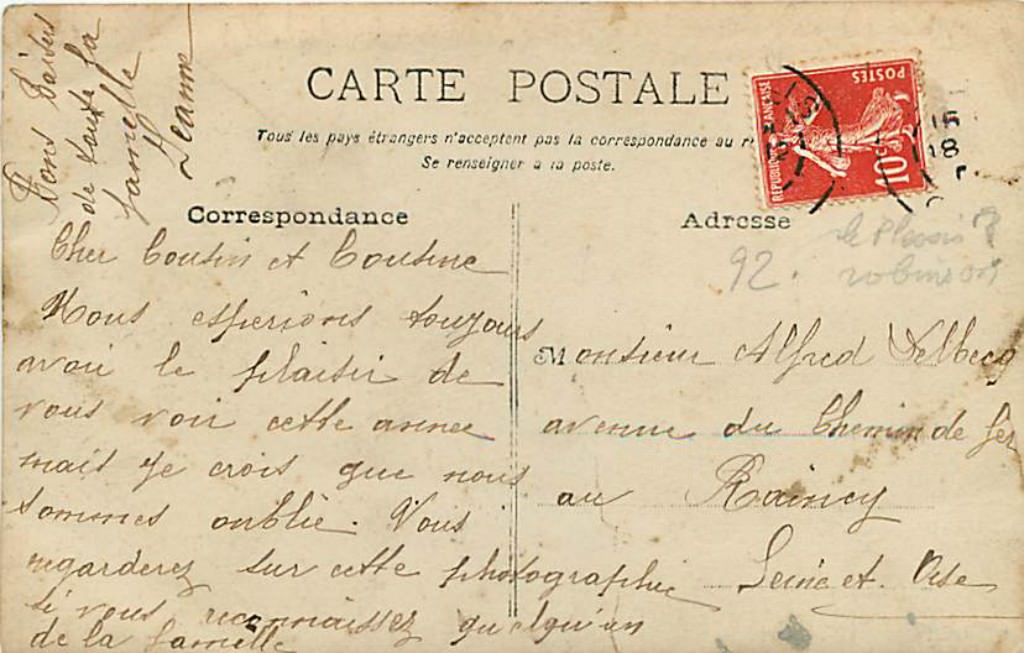 Bons Baisers
de toute la
famille
Jeanne
CARTE POSTALE
Tous les pays étrangers n'acceptent pas la correspondance au
Se renseigner a la poste.
RÉPUBLIQUE FRANÇAISE
POSTES
10c
Correspondance
Cher Cousin et Cousine
Nous esperions toujours
avoi le plaisir de
vous voir cette annee
mait je crois que nous
sommes oublié. Vous
regarderez sur cette photographie
si vous reconnaissez quelqu'un
de la famille
Adresse
92. le Plessis ?
robinson
Monsieur Alfred Delbecq
avenue du Chemin de fer
au Raincy
Seine et Oise